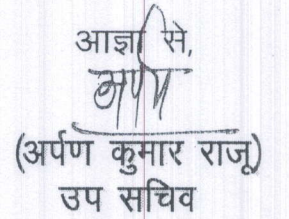 आज्ञा से,
अर्पण
(अर्पण कुमार राजू)
उप सचिव